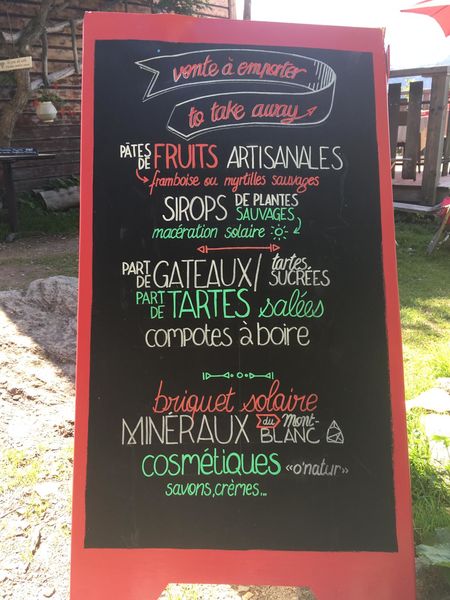 vente à emporter
to take away
PÂTES DE FRUITS ARTISANALES
framboise ou myrtilles sauvages
SIROPS DE PLANTES SAUVAGES
macération solaire
PART DE GATEAUX/ tartes SUCRÉES
PART DE TARTES salées
compotes à boire
briquet solaire
MINÉRAUX du MONT-BLANC
cosmétiques «o'natur»
savons, crèmes...